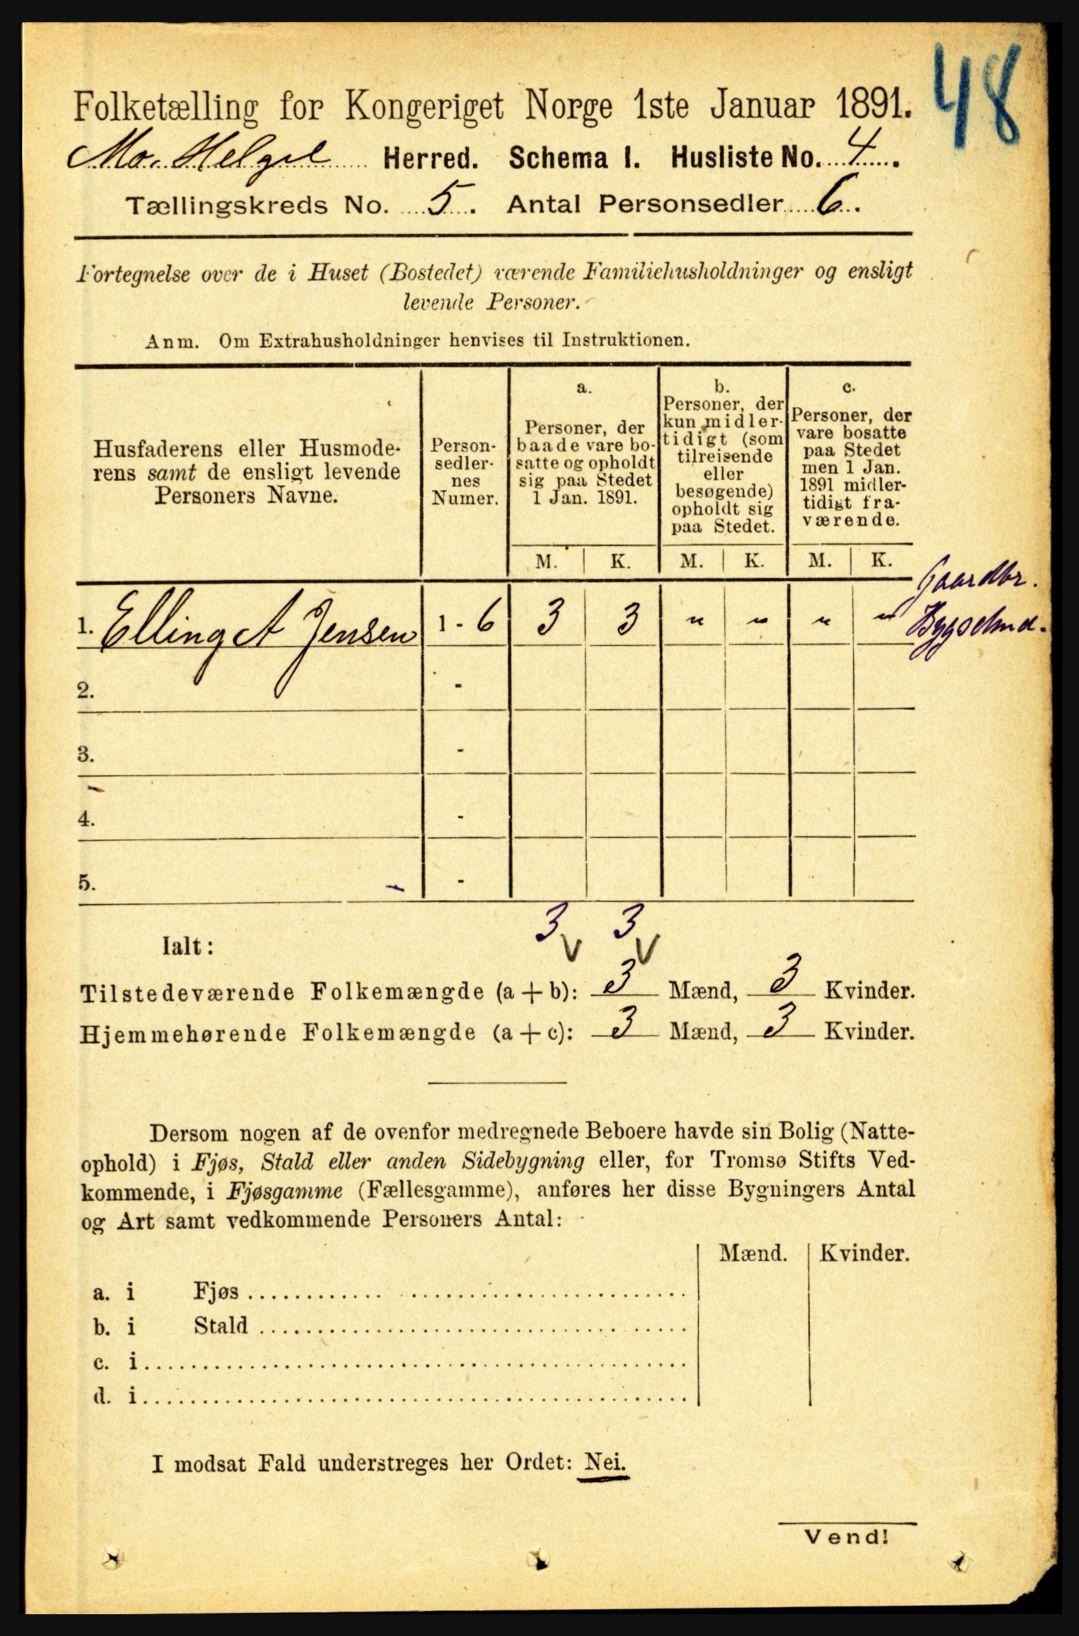 48
Folketælling for Kongeriget Norge 1ste Januar 1891.
Mo. Helgel Herred. Schema I. Husliste No. 4.
Tællingskreds No. 5. Antal Personsedler 6.
Fortegnelse over de i Huset (Bostedet) værende Familiehusholdninger og ensligt
levende Personer.
Anm. Om Extrahusholdninger henvises til Instruktionen.
Husfaderens eller Husmode-
rens samt de ensligt levende
Personers Navne.
Person-
sedler-
nes
Numer.
a.
Personer, der
baade vare bo-
satte og opholdt
sig paa Stedet
1 Jan. 1891.
b.
Personer, der
kun midler-
tidigt (som
tilreisende
eller
besøgende)
opholdt sig
paa Stedet.
c.
Personer, der
vare bosatte
paa Stedet
men 1 Jan.
1891 midler-
tidigt fra-
værende.
M. K. M. K. M. K.
Gaardbr.
1. Elling A Jensen 1 - 6 3 3 " " " " Bygselmd.
2. -
3. -
4. -
5. -
3 3
Ialt: V V
Tilstedeværende Folkemængde (a + b): 3 Mænd, 3 Kvinder.
Hjemmehørende Folkemængde (a + c): 3 Mænd, 3 Kvinder.
Dersom nogen af de ovenfor medregnede Beboere havde sin Bolig (Natte-
ophold) i Fjøs, Stald eller anden Sidebygning eller, for Tromsø Stifts Ved-
kommende, i Fjøsgamme (Fællesgamme), anføres her disse Bygningers Antal
og Art samt vedkommende Personers Antal:
Mænd. Kvinder.
a. i Fjøs
b. i Stald
c. i
d. i
I modsat Fald understreges her Ordet: Nei.
Vend!